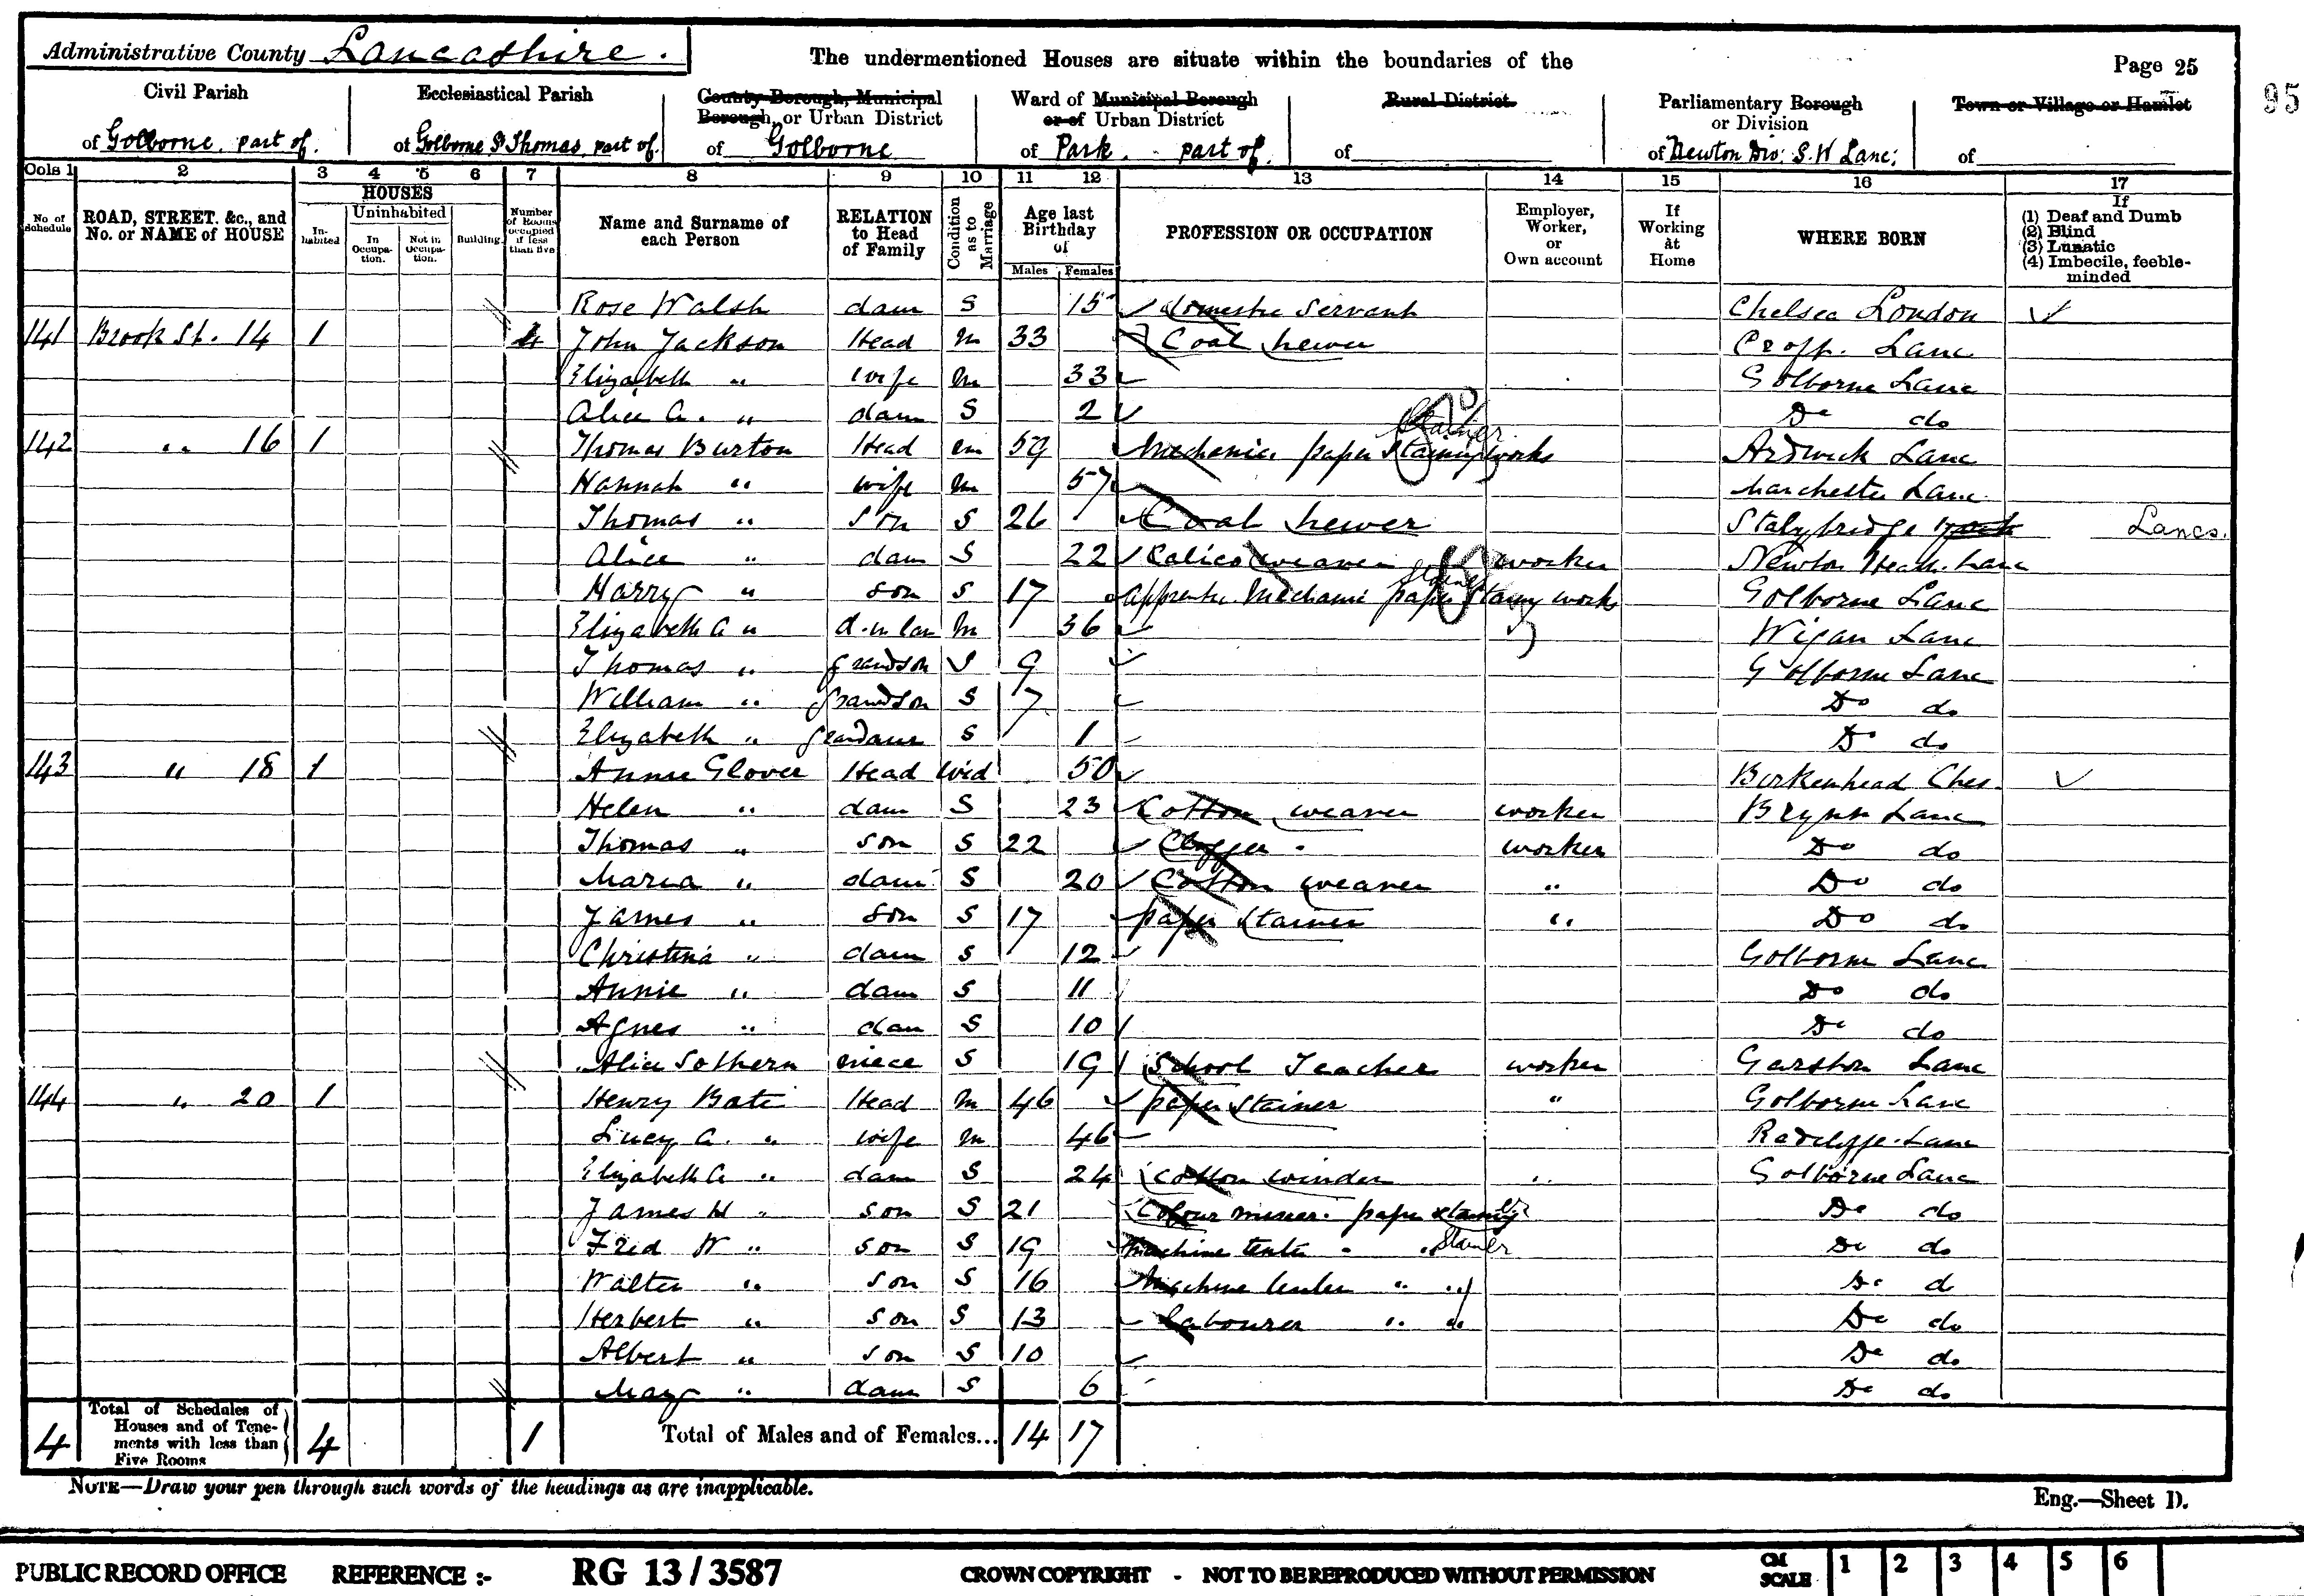 Administrative County Lancashire.
The undermentioned Houses are situate within the boundaries of the
Page 25
95
Civil Parish
of Golborne. part of.
Ecclesiastical Parish
of Golborne St Thomas, part of.
County Borough, Municipal Borough, or Urban District
of Golborne
Ward of Municipal Borough or of Urban District
of Park. part of.
Rural District
of
Parliamentary Borough or Division
of Newton Div: S.W Lanc:
Town or Village or Hamlet
of
Cols 1 2 3 4 5 6 7 8 9 10 11 12 13 14 15 16 17
No. of Schedule
ROAD, STREET, &c., and No. or NAME of HOUSE
HOUSES
Inhabited
Uninhabited
In Occupation.
Not in Occupation.
Building.
Number of Rooms occupied if less than five
Name and Surname of each Person
RELATION to Head of Family
Condition as to Marriage
Age last Birthday of
Males Females
PROFESSION OR OCCUPATION
Employer, Worker, or Own account
If Working at Home
WHERE BORN
If
(1) Deaf and Dumb
(2) Blind
(3) Lunatic
(4) Imbecile, feeble-minded
Rose Walsh daur S 15 domestic Servant Chelsea London
141 Brook St. 14 1 4 John Jackson Head M 33 Coal hewer Croft. Lanc
Elizabeth " wife M 33 Golborne Lanc
Alice A. " daur S 2 Do do
142 " 16 1 Thomas Burton Head M 59 Mechanic paper Staining works Stainer Ardwick Lanc
Hannah " wife M 57 Manchester Lanc
Thomas " Son S 26 Coal hewer Stalybridge Lancs.
Alice " daur S 22 Calico weaver worker Newton Heath. Lanc
Harry " son S 17 Apprentice Mechanic paper Staing works Golborne Lanc
Elizabeth A " d.in law M 36 Wigan Lanc
Thomas " grandson S 9 Golborne Lanc
William " grandson S 7 Do do
Elizabeth " grandaur S 1 Do do
143 " 18 1 Annie Glover Head Wid 50 Birkenhead Ches.
Helen " daur S 23 Cotton weaver worker Brynn Lanc
Thomas " son S 22 Clogger worker Do do
Maria " daur S 20 Cotton weaver " Do do
James " son S 17 paper Stainer " Do do
Christina " daur S 12 Golborne Lanc
Annie " daur S 11 Do do
Agnes " daur S 10 Do do
Alice Sothern niece S 19 School Teacher worker Garston Lanc
144 " 20 1 Henry Bate Head M 46 paper Stainer " Golborne Lanc
Lucy A. " wife M 46 Radclyffe. Lanc
Elizabeth A " daur S 24 Cotton winder " Golborne Lanc
James H " son S 21 Colour mixer. paper Staing Do do
Fred W " son S 19 Machine tenter " " Stainer Do do
Walter " son S 16 Machine tenter " " Do d
Herbert " son S 13 Labourer " " Do do
Albert " son S 10 Do do
May " daur S 6 Do do
4 Total of Schedules of Houses and of Tenements with less than Five Rooms 4 1 Total of Males and of Females... 14 17
NOTE—Draw your pen through such words of the headings as are inapplicable.
Eng.—Sheet D.
PUBLIC RECORD OFFICE REFERENCE :- RG 13 / 3587 CROWN COPYRIGHT - NOT TO BE REPRODUCED WITHOUT PERMISSION CM SCALE 1 2 3 4 5 6